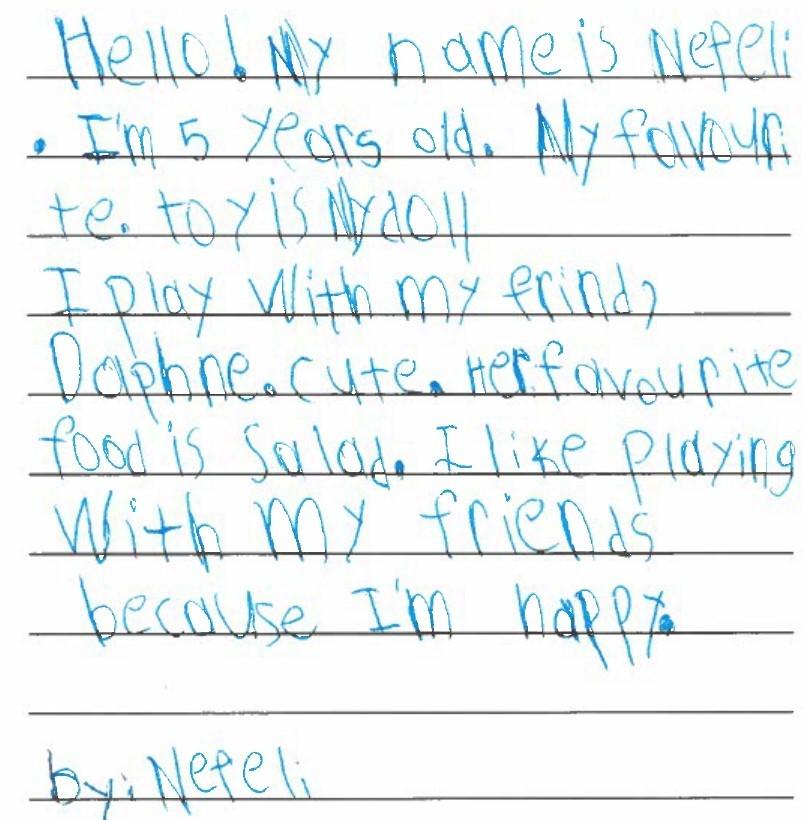 Hello! My name is Nefeli
. I'm 5 years old. My favouri
te. toy is My doll
I play With my frind,
Daphne. cute. Her favourite
food is Salad. I like playing
With my friends
because I'm happy.
by: Nefeli